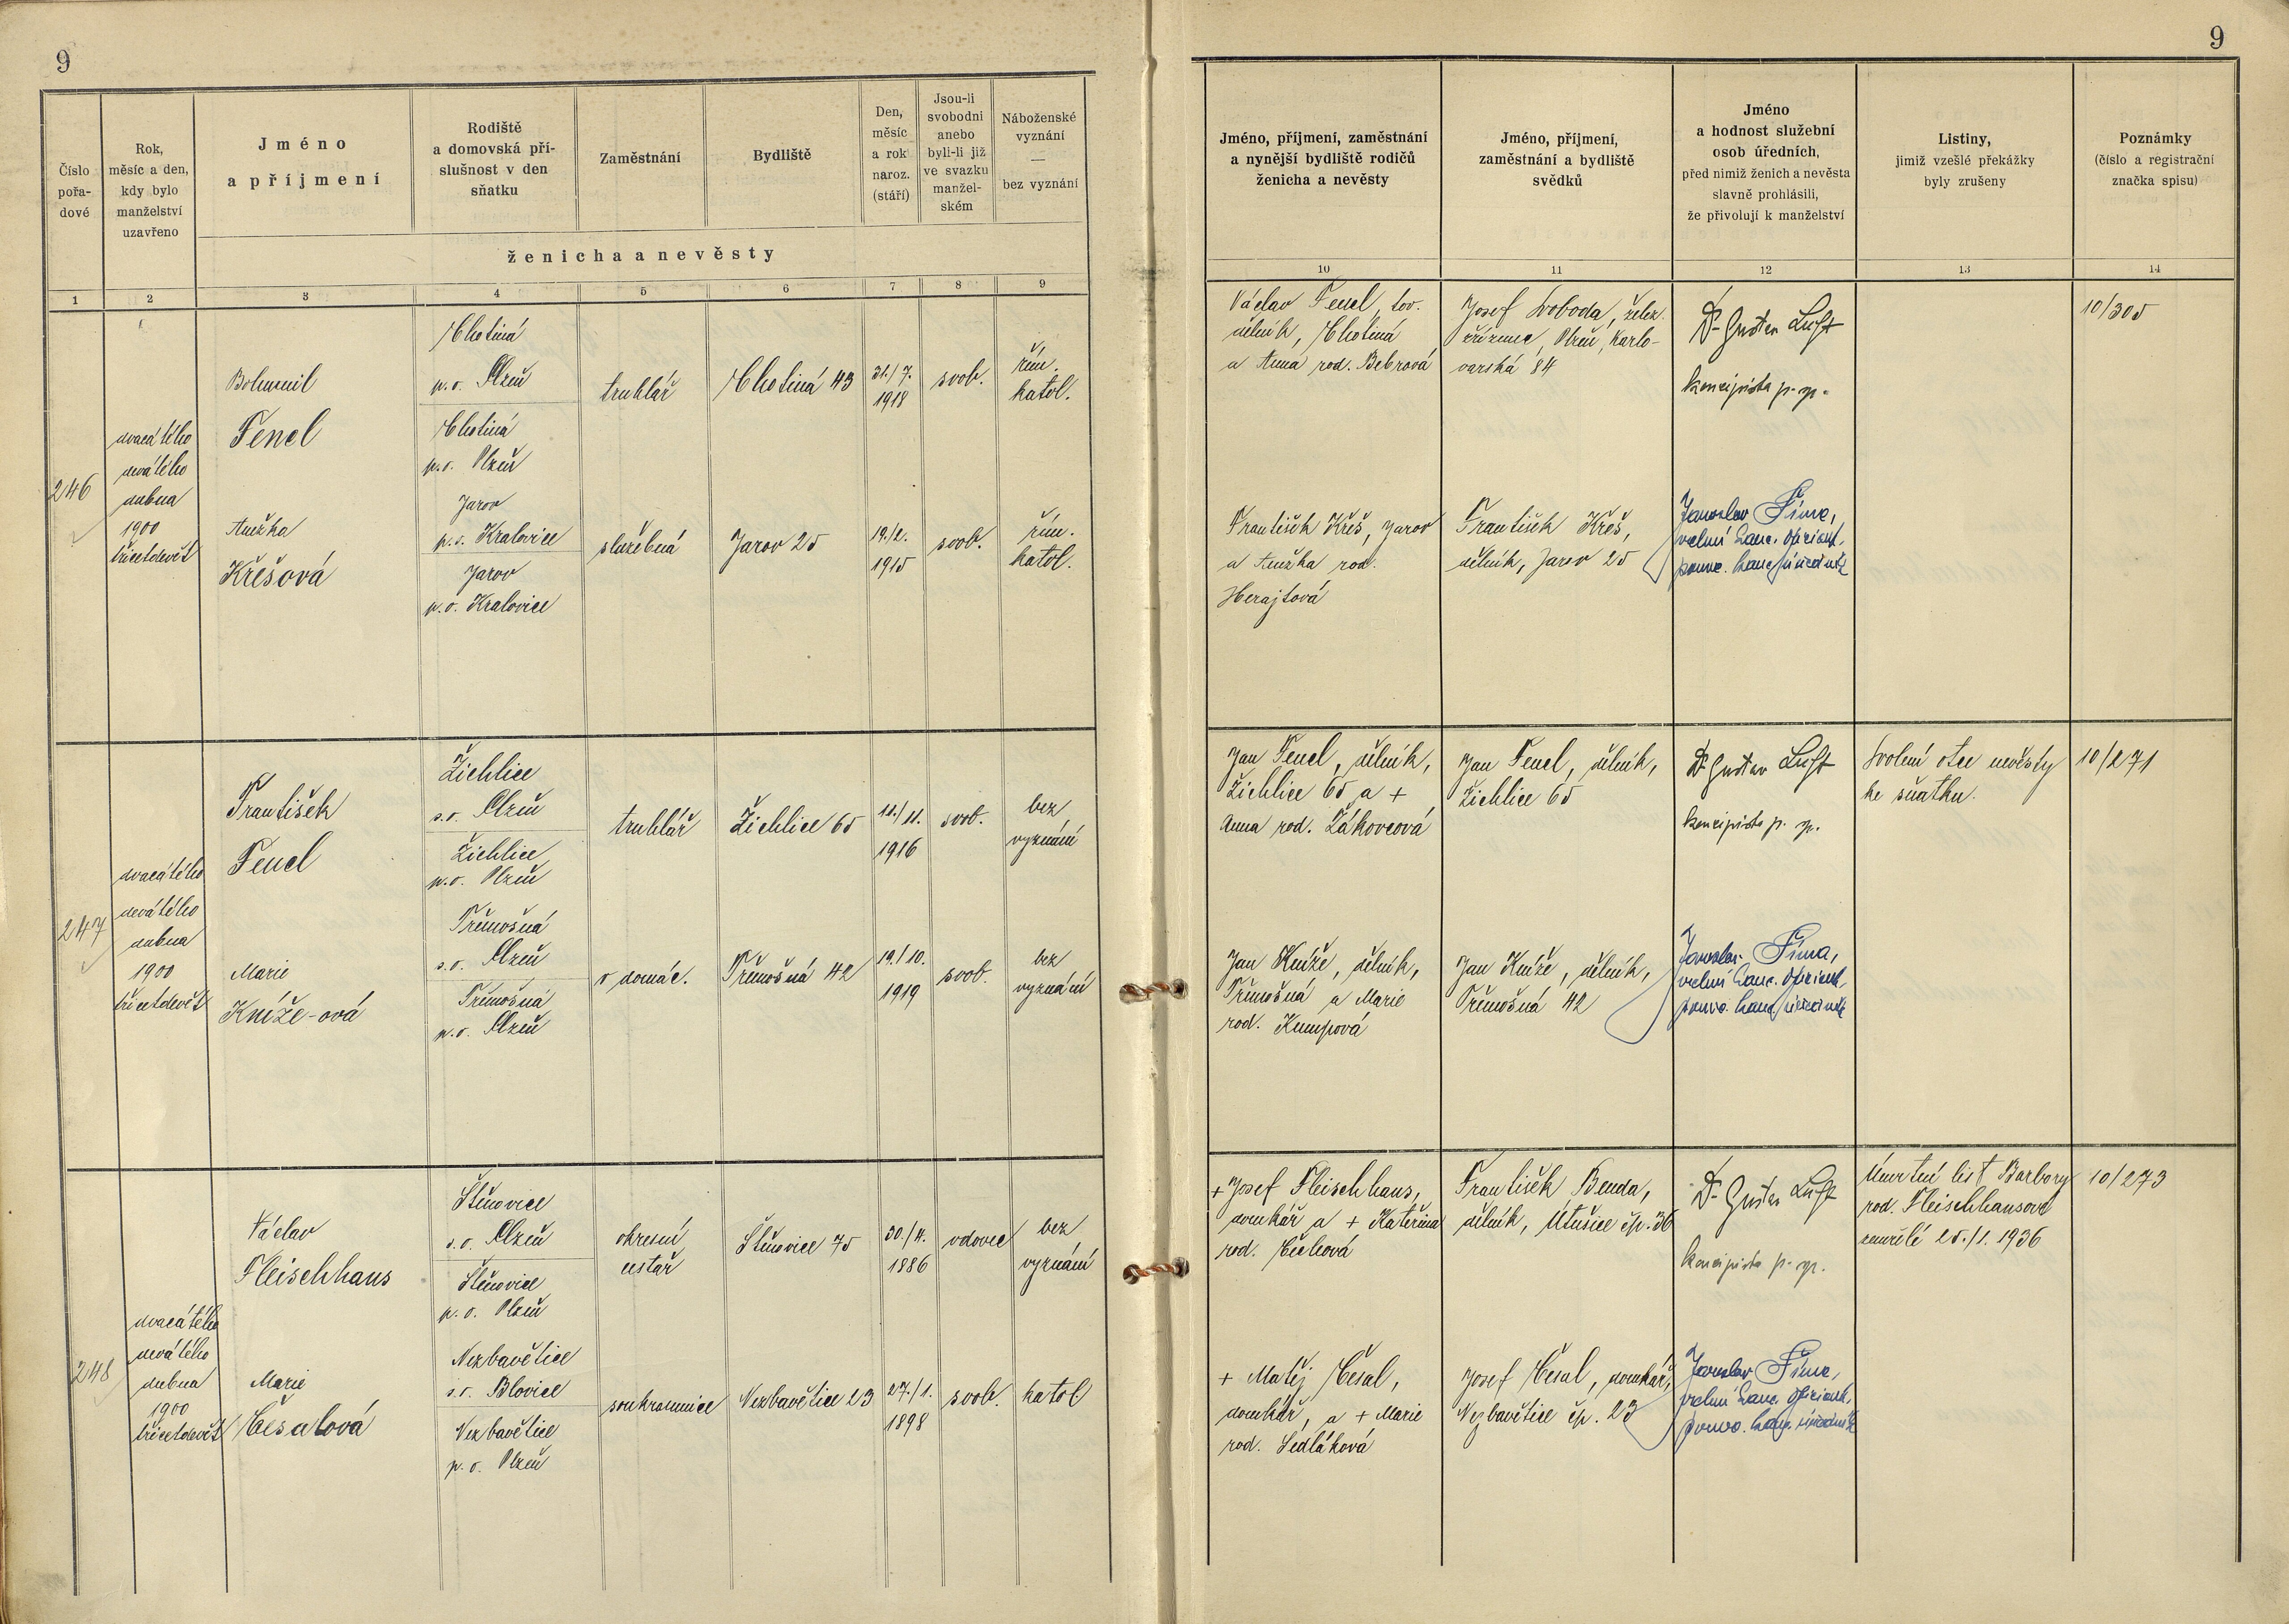 9
9
Číslo pořa-dové
Rok, měsíc a den, kdy bylo manželství uzavřeno
Jméno a příjmení
Rodiště a domovská pří-slušnost v den sňatku
Zaměstnání
Bydliště
Den, měsíc a rok naroz. (stáří)
Jsou-li svobodni anebo byli-li již ve svazku manžel-ském
Náboženské vyznání — bez vyznání
ženicha a nevěsty
Jméno, příjmení, zaměstnání a nynější bydliště rodičů ženicha a nevěsty
Jméno, příjmení, zaměstnání a bydliště svědků
Jméno a hodnost služební osob úředních, před nimiž ženich a nevěsta slavně prohlásili, že přivolují k manželství
Listiny, jimiž vzešlé překážky byly zrušeny
Poznámky (číslo a registrační značka spisu)
1 2 3 4 5 6 7 8 9 10 11 12 13 14
246
dvacátého
devátého
dubna
1900
třicetdevět
Bohumil
Fenel
Chotiná
p.o. Plzeň
Chotiná
p.o. Plzeň
truhlář
Chotiná 43
31./7.
1918
svob.
řím.
katol.
Anežka
Křešová
Jarov
p.o. Kralovice
Jarov
p.o. Kralovice
služebná
Jarov 25
19./2.
1915
svob.
řím.
katol.
Václav Fenel, tov.
dělník, Chotiná
a Anna rod. Bebrová
Josef Svoboda, želez.
zřízenec, Plzeň, Karlo-
varská 84
Dr Gustav Luft
koncipista p. sp.
10/305
František Křeš, Jarov
a Anežka rod.
Herajtová
František Křeš,
dělník, Jarov 25
Jaroslav Šíma,
vrchní kanc. oficiant,
pověř. kanc. úředník
247
dvacátého
devátého
dubna
1900
třicetdevět
František
Fenel
Žichlice
s.o. Plzeň
Žichlice
p.o. Plzeň
truhlář
Žichlice 65
12./11.
1916
svob.
bez
vyznání
Marie
Kníže-ová
Třemošná
s.o. Plzeň
Třemošná
p.o. Plzeň
v domác.
Třemošná 42
19./10.
1919
svob.
bez
vyznání
Jan Fenel, dělník,
Žichlice 65 a +
Anna rod. Žákovcová
Jan Fenel, dělník,
Žichlice 65
Dr Gustav Luft
koncipista p. sp.
Svolení otce nevěsty
ke sňatku.
10/271
Jan Kníže, dělník,
Třemošná a Marie
rod. Kumpová
Jan Kníže, dělník,
Třemošná 42
Jaroslav Šíma,
vrchní kanc. oficiant,
pověř. kanc. úředník
248
dvacátého
devátého
dubna
1900
třicetdevět
Václav
Fleischhaus
Štěnovice
s.o. Plzeň
Štěnovice
p.o. Plzeň
okresní
cestář
Štěnovice 75
30./4.
1886
vdovec
bez
vyznání
Marie
Česalová
Nezbavětice
s.o. Blovice
Nezbavětice
p.o. Plzeň
soukromnice
Nezbavětice 23
27./1.
1898
svob.
katol
+ Josef Fleischhaus,
domkář a + Kateřina
rod. Čechová
František Benda,
dělník, Útušice čp. 36
Dr Gustav Luft
koncipista p. sp.
Úmrtní list Barbory
rod. Fleischhausové
zemřelé 25./1. 1936
10/273
+ Matěj Česal,
domkář, a + Marie
rod. Sedláková
Josef Česal, domkář,
Nezbavětice čp. 23
Jaroslav Šíma,
vrchní kanc. oficiant,
pověř. kanc. úředník